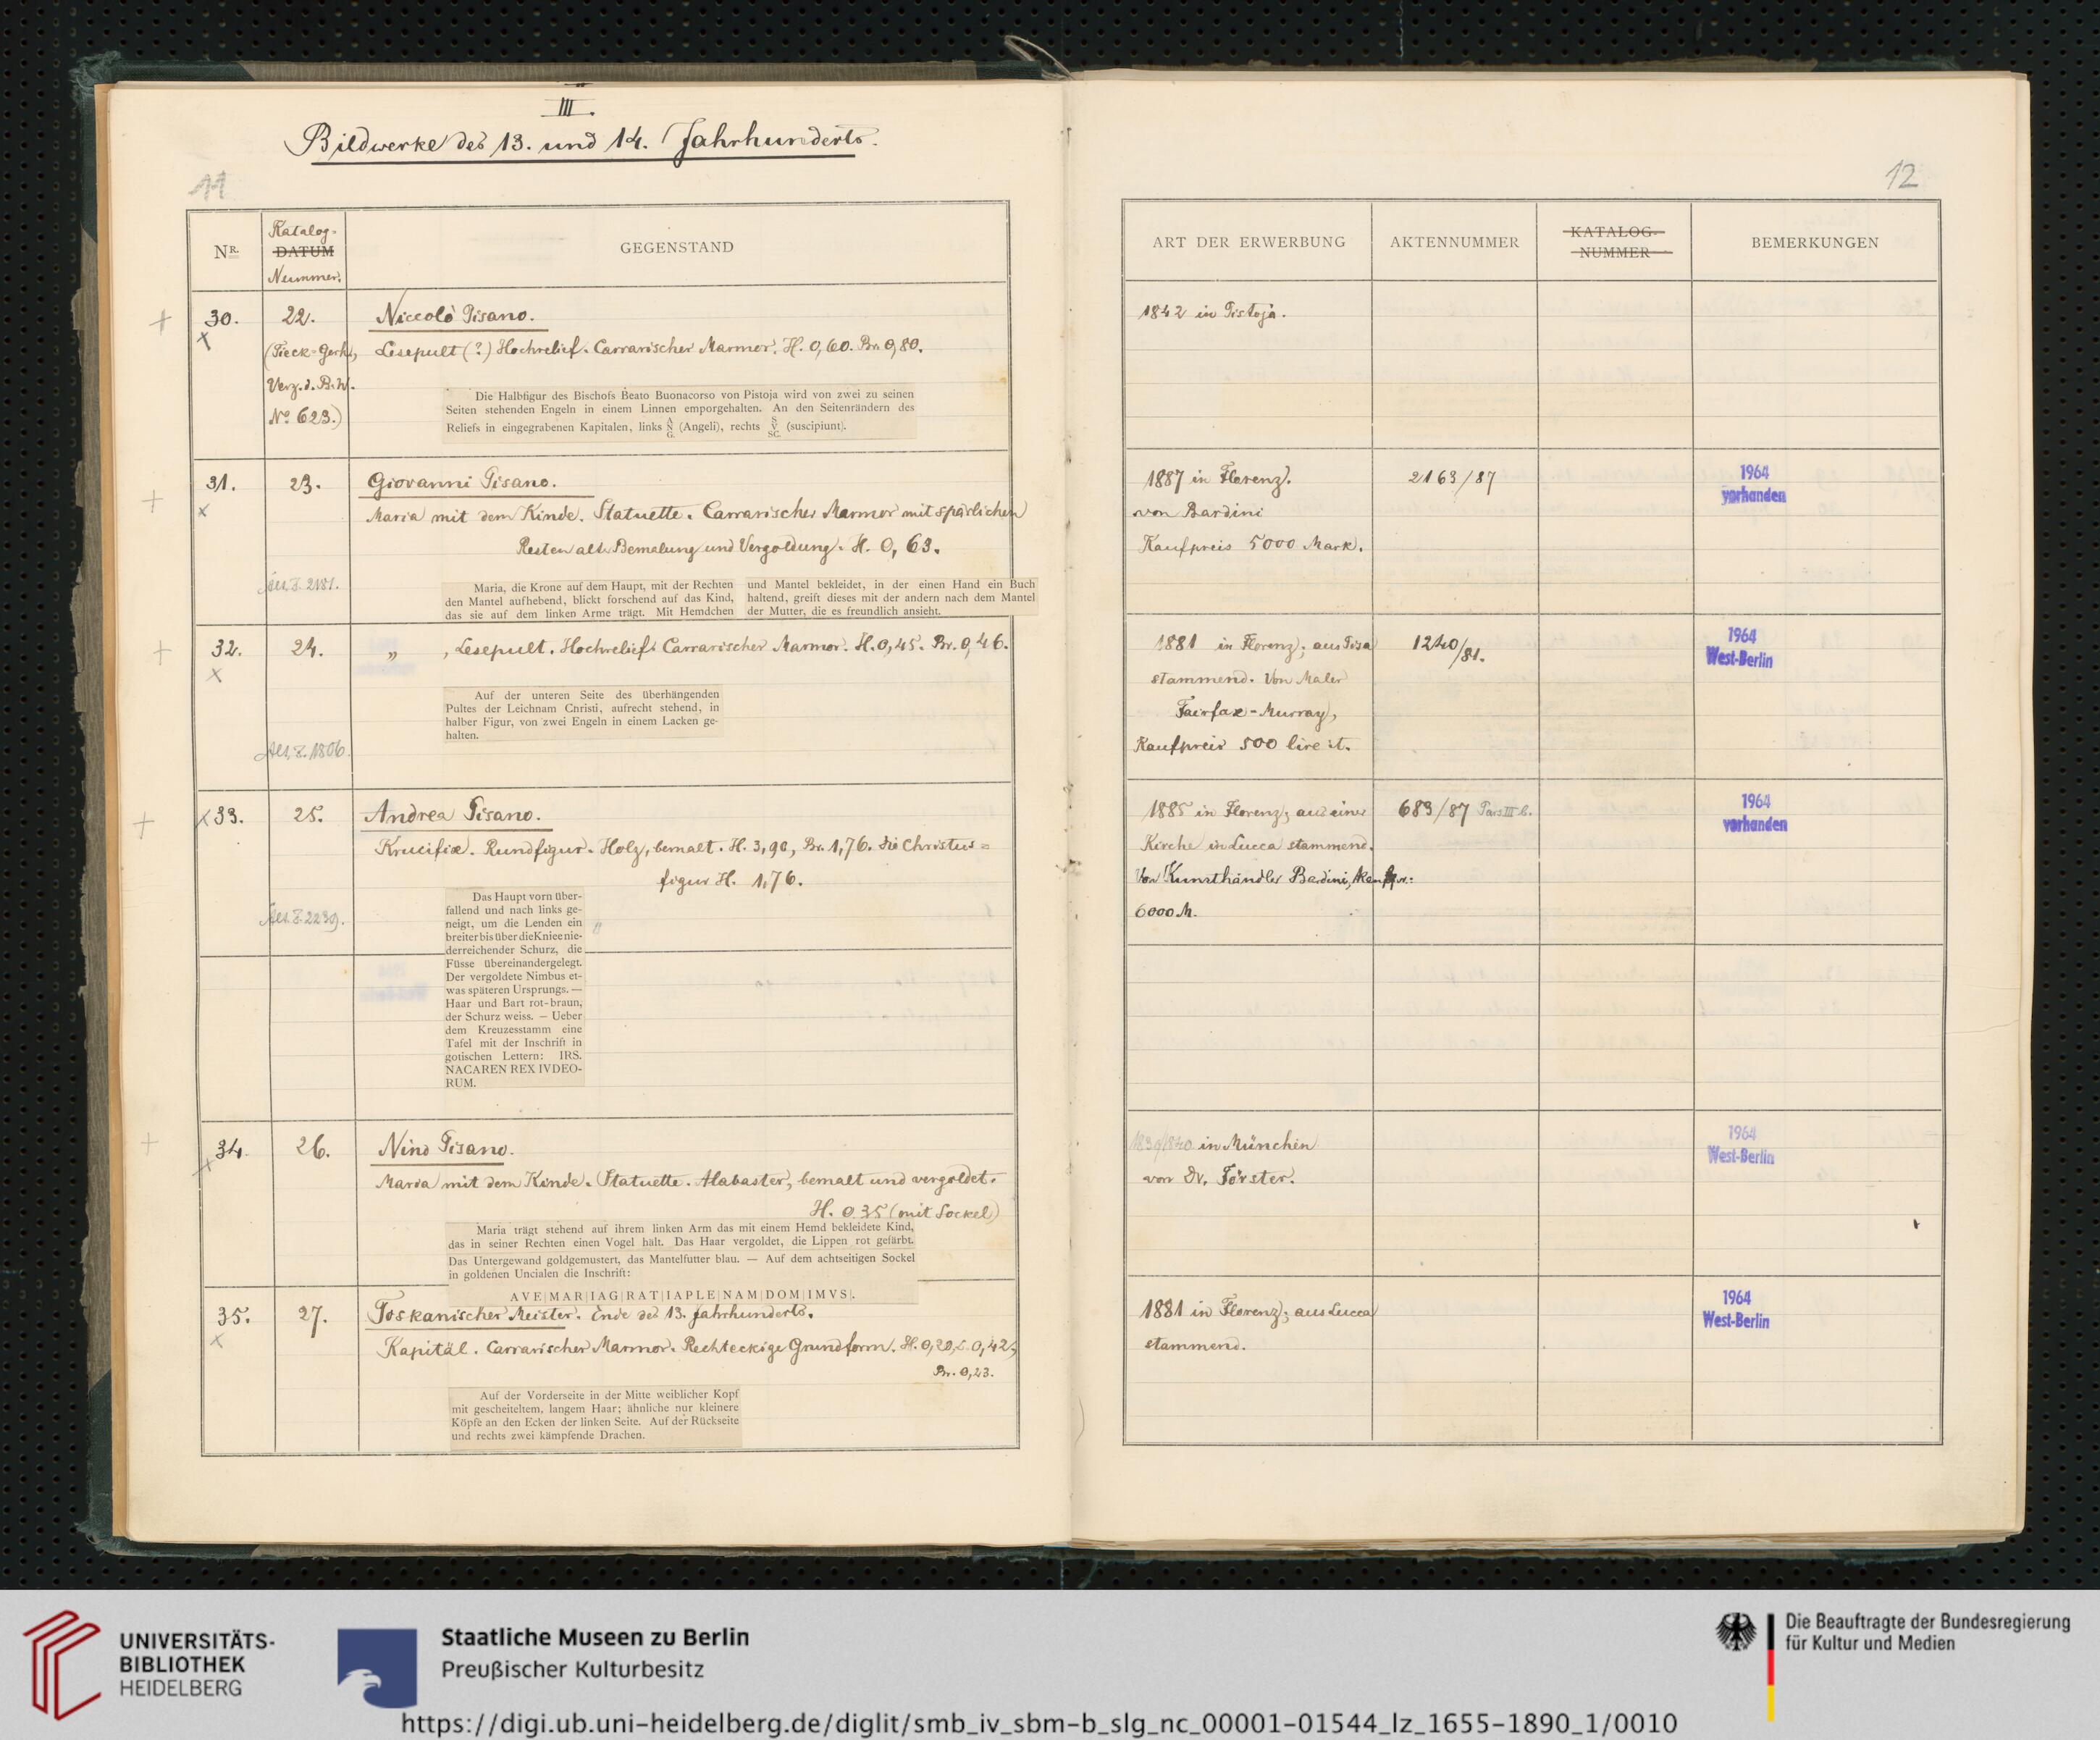 III.
Bildwerke des 13. und 14. Jahrhunderts.
11
NR.
Katalog-
DATUM
Nummer.
GEGENSTAND
30.
22.
Niccolò Pisano.
(Tieck-Gerh.,
Lesepult (?) Hochrelief. Carrarischer Marmor. H. 0,60. Br. 0,80.
Verz. d. B.W.
No 623.)
Die Halbfigur des Bischofs Beato Buonacorso von Pistoja wird von zwei zu seinen
Seiten stehenden Engeln in einem Linnen emporgehalten. An den Seitenrändern des
Reliefs in eingegrabenen Kapitalen, links A N G. (Angeli), rechts S V SC. (suscipiunt).
31.
23.
Giovanni Pisano.
Maria mit dem Kinde. Statuette. Carrarischer Marmor mit spärlichen
Resten alter Bemalung und Vergoldung. H. 0,63.
2181.
Maria, die Krone auf dem Haupt, mit der Rechten
den Mantel aufhebend, blickt forschend auf das Kind,
das sie auf dem linken Arme trägt. Mit Hemdchen
und Mantel bekleidet, in der einen Hand ein Buch
haltend, greift dieses mit der andern nach dem Mantel
der Mutter, die es freundlich ansieht.
32.
24.
„ , Lesepult. Hochrelief. Carrarischer Marmor. H. 0,45. Br. 0,46.
Auf der unteren Seite des überhängenden
Pultes der Leichnam Christi, aufrecht stehend, in
halber Figur, von zwei Engeln in einem Lacken ge-
halten.
1806.
33.
25.
Andrea Pisano.
Krucifix. Rundfigur. Holz, bemalt. H. 3,90, Br. 1,76. die Christus=
figur H. 1,76.
2239.
Das Haupt vorn über-
fallend und nach links ge-
neigt, um die Lenden ein
breiter bis über die Kniee nie-
derreichender Schurz, die
Füsse übereinandergelegt.
Der vergoldete Nimbus et-
was späteren Ursprungs. —
Haar und Bart rot-braun,
der Schurz weiss. — Ueber
dem Kreuzesstamm eine
Tafel mit der Inschrift in
gotischen Lettern: IRS.
NACAREN REX IVDEO-
RUM.
34.
26.
Nino Pisano.
Maria mit dem Kinde. Statuette. Alabaster, bemalt und vergoldet.
H. 0,35 (mit Sockel)
Maria trägt stehend auf ihrem linken Arm das mit einem Hemd bekleidete Kind,
das in seiner Rechten einen Vogel hält. Das Haar vergoldet, die Lippen rot gefärbt.
Das Untergewand goldgemustert, das Mantelfutter blau. — Auf dem achtseitigen Sockel
in goldenen Uncialen die Inschrift:
AVE|MAR|IAG|RAT|IAPLE|NAM|DOM|IMVS|.
35.
27.
Toskanischer Meister. Ende des 13. Jahrhunderts.
Kapitäl. Carrarischer Marmor. Rechteckige Grundform. H. 0,20, L. 0,42,
Br. 0,23.
Auf der Vorderseite in der Mitte weiblicher Kopf
mit gescheiteltem, langem Haar; ähnliche nur kleinere
Köpfe an den Ecken der linken Seite. Auf der Rückseite
und rechts zwei kämpfende Drachen.
12
ART DER ERWERBUNG
AKTENNUMMER
KATALOG-
NUMMER
BEMERKUNGEN
1842 in Pistoja.
1887 in Florenz.
von Bardini
Kaufpreis 5000 Mark.
2163/87
1964
vorhanden
1881 in Florenz; aus Pisa
stammend. Von Maler
Fairfax-Murray,
Kaufpreis 500 lire it.
1240/81.
1964
West-Berlin
1885 in Florenz; aus einer
Kirche in Lucca stammend.
Von Kunsthändler Bardini, Kaufpr.:
6000 M.
683/87 Pars III b.
1964
vorhanden
1839/1840 in München
von Dr. Förster.
1964
West-Berlin
1881 in Florenz; aus Lucca
stammend.
1964
West-Berlin
UNIVERSITÄTS-
BIBLIOTHEK
HEIDELBERG
Staatliche Museen zu Berlin
Preußischer Kulturbesitz
Die Beauftragte der Bundesregierung
für Kultur und Medien
https://digi.ub.uni-heidelberg.de/diglit/smb_iv_sbm-b_slg_nc_00001-01544_lz_1655-1890_1/0010